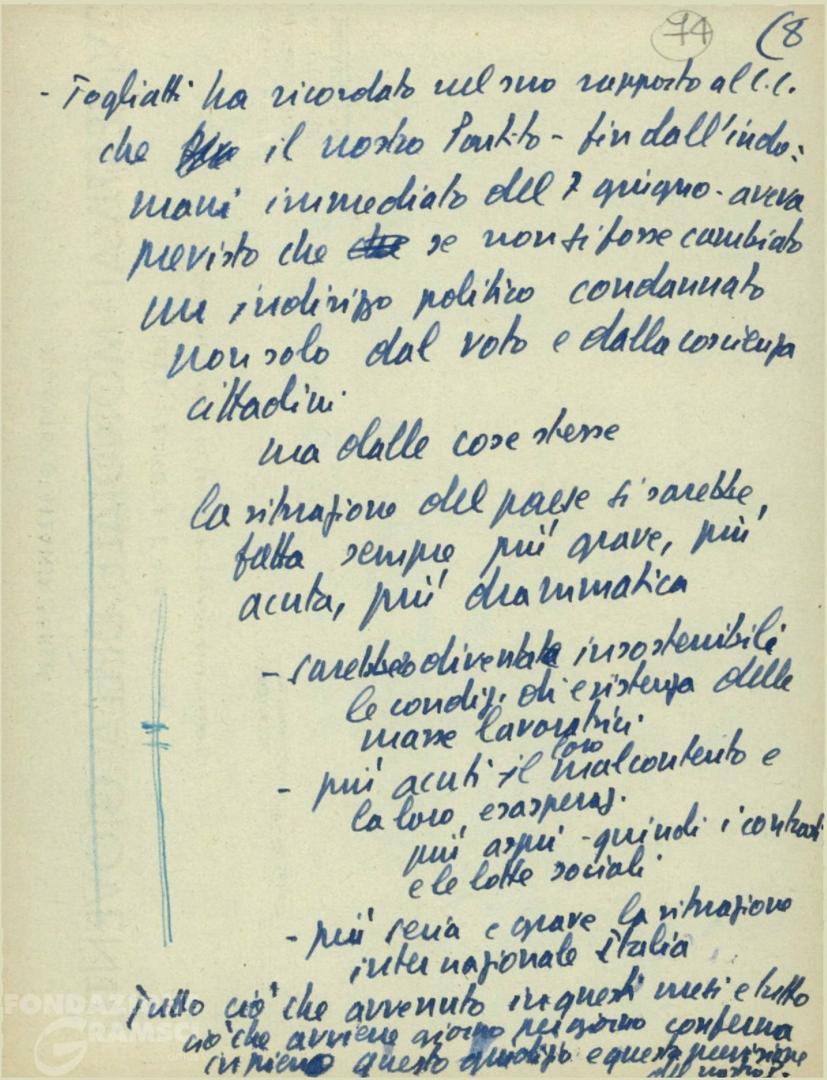 74 (8
- Togliatti ha ricordato nel suo rapporto al C.C.
che il nostro Partito - fin dall'indo=
mani immediato del 7 giugno - aveva
previsto che se non si fosse cambiato
un indirizzo politico condannato
non solo dal voto e dalla coscienza
cittadini
ma dalle cose stesse
la situazione del paese si sarebbe
fatta sempre più grave, più
acuta, più drammatica
- sarebbero diventate insostenibili
le condiz. di esistenza delle
masse lavoratrici
- più acuti il loro malcontento e
la loro esasperaz.
più aspri - quindi i contrasti
e le lotte sociali
- più seria e grave la situazione
internazionale Italia
Tutto ciò che avvenuto in questi mesi e tutto
ciò che avviene giorno per giorno conferma
in pieno questo giudizio e questa previsione
del nostro P.
FONDAZIONE
GRAMSCI